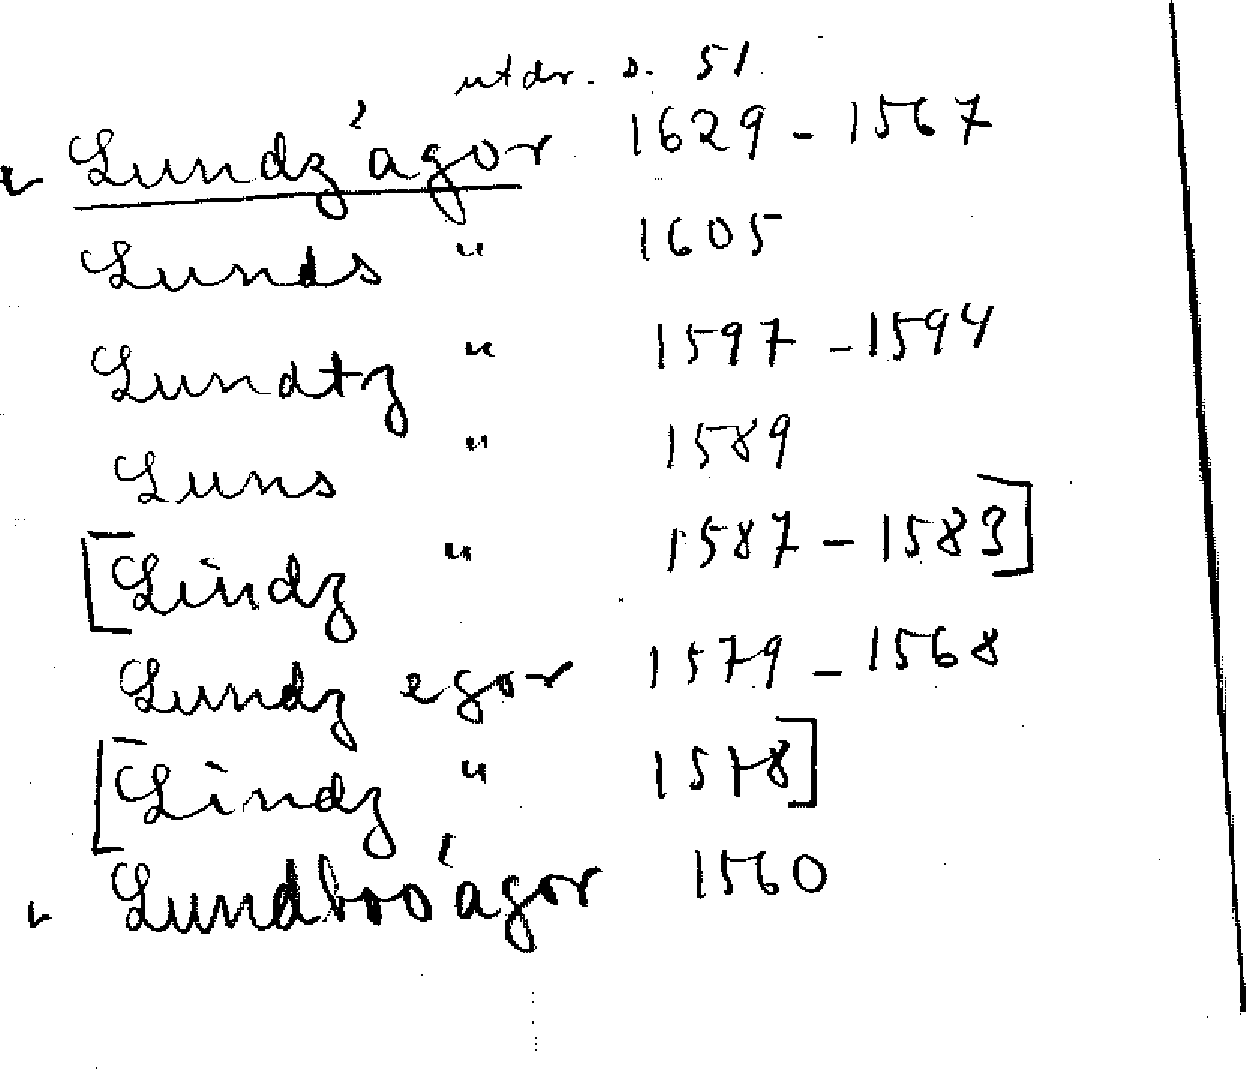 utdr. s. 51.
Lundz'agor 1629 - 1567
Lunds " 1605
Lundtz " 1597 - 1594
Luns " 1589
[Lindz " 1587 - 1583]
Lundz egor 1579 - 1568
[Lindz " 1578]
Lundboo'agor 1560